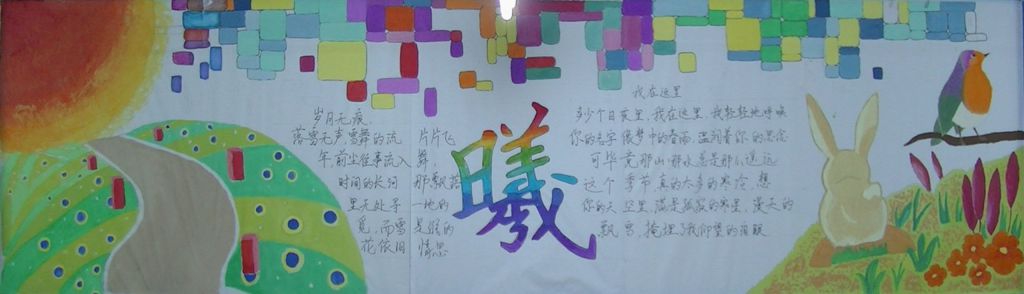 岁月无痕
落雪无声雪舞的流 片片飞
年前尘往事流入 舞
时间的长河 那飘落
里无处寻 一地的
觅,而雪 是经的
花依旧 情思
曦
我在这里
多少个日夜里,我在这里,我轻轻地呼唤
你的名字 像梦中的春雨,温润着你的思念
可毕竟,那山那水总是那么遥远
这个 季节真的太多的寒冷,想
你的天 这里,满是孤寂的寒星,漫天的
飘雪,掩埋了我仰望的